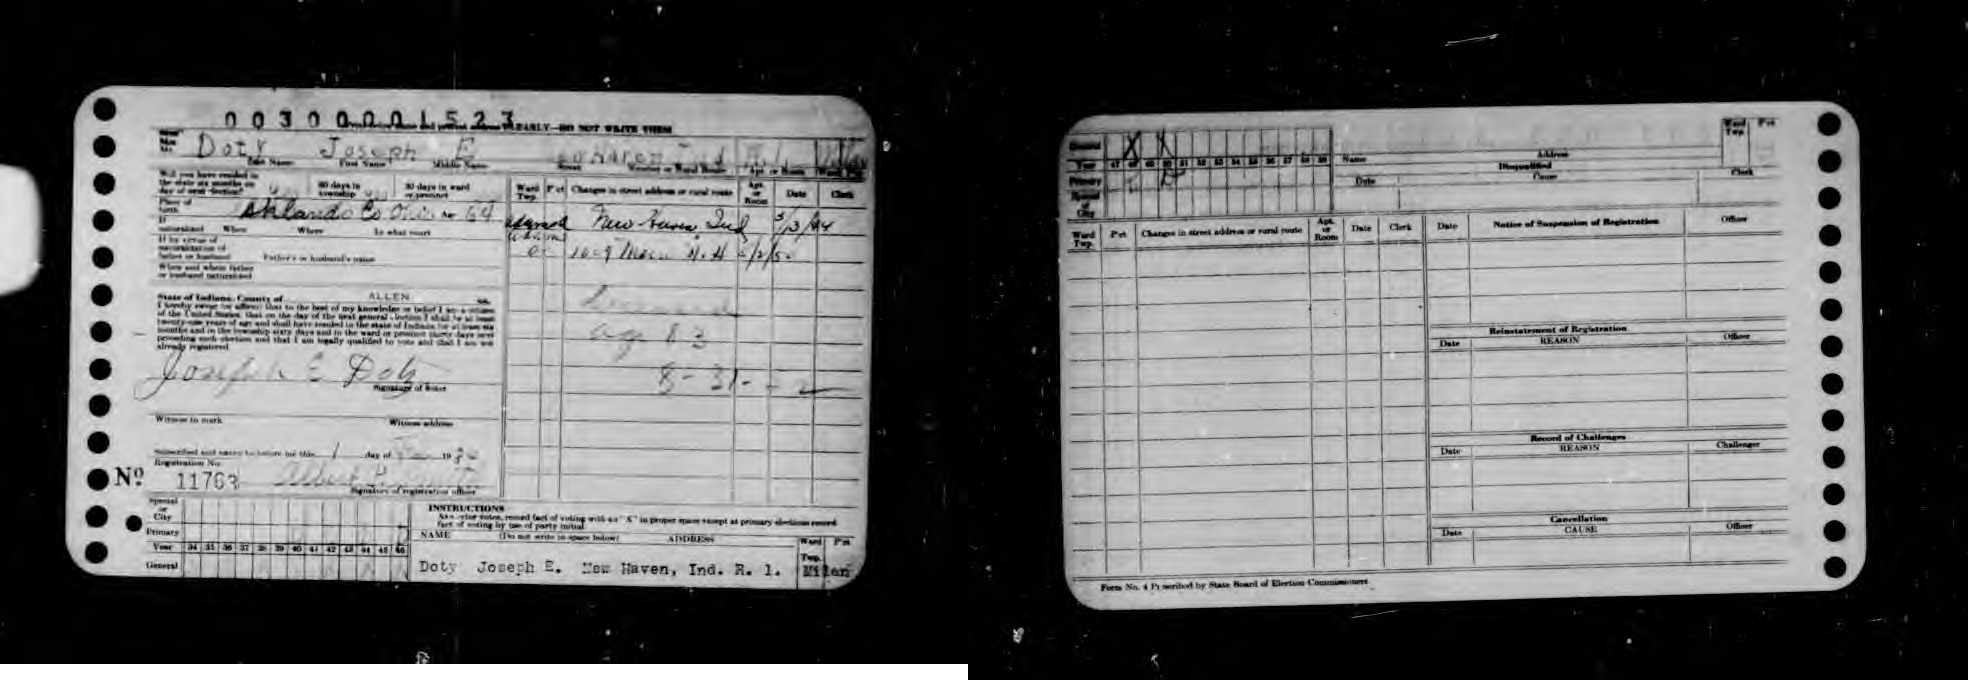 00300001523
EARLY—DO NOT WRITE THEM
Doty Joseph E New Haven Ind R. 1. Milan
Last Name First Name Middle Name Street Number or Rural Route Apt. or Room Ward Pct
Will you have resided in the state six months on day of next election? 60 days in township 30 days in ward or precinct
Place of birth Ashland Co Ohio Age 64
If naturalized When Where In what court
If by virtue of naturalization of father or husband Father's or husband's name
When and where father or husband naturalized
State of Indiana, County of ALLEN ss.
I hereby swear (or affirm) that to the best of my knowledge or belief I am a citizen
of the United States, that on the day of the next general election I shall be at least
twenty-one years of age and shall have resided in the state of Indiana for at least six
months and in the township sixty days and in the ward or precinct thirty days next
preceding such election and that I am legally qualified to vote and that I am not
already registered.
Joseph E Doty
Signature of Voter
Witness to mark Witness address
Subscribed and sworn to before me this 1 day of 19
Registration No.
No. 11763 Albert
Signature of registration officer
Ward Twp. Pct Changes in street address or rural route Apt. or Room Date Clerk
Adams New Haven Ind 3/13/44
Main N. H. /2/5
age 83
8-31-
Special or City
Primary
Year 34 35 36 37 38 39 40 41 42 43 44 45 46
General
INSTRUCTIONS
As voter votes, record fact of voting with an "X" in proper space except at primary elections record
fact of voting by use of party initial.
NAME (Do not write in space below) ADDRESS Ward Twp. Pct
Doty Joseph E. New Haven, Ind. R. 1. Milan
General X X
Year 47 48 49 50 51 52 53 54 55 56 57 58 59
Primary
Special or City
Name Address Ward Twp. Pct
Disqualified
Date Cause Clerk
Ward Twp. Pct Changes in street address or rural route Apt. or Room Date Clerk
Date Notice of Suspension of Registration Officer
Reinstatement of Registration
Date REASON Officer
Record of Challenges
Date REASON Challenger
Cancellation
Date CAUSE Officer
Form No. 4 Prescribed by State Board of Election Commissioners